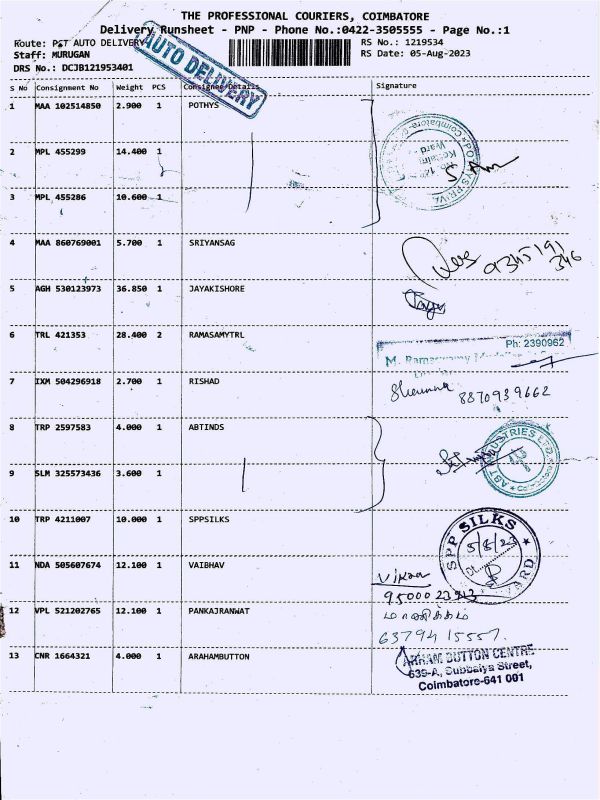 THE PROFESSIONAL COURIERS, COIMBATORE
Delivery Runsheet - PNP - Phone No.:0422-3505555 - Page No.:1
Route: PST AUTO DELIVERY RS No.: 1219534
Staff: MURUGAN RS Date: 05-Aug-2023
DRS No.: DCJB121953401
AUTO DELIVERY
S No Consignment No Weight PCS Consignee Details Signature
1 MAA 102514850 2.900 1 POTHYS
2 MPL 455299 14.400 1
3 MPL 455286 10.600 1
4 MAA 860769001 5.700 1 SRIYANSAG
5 AGH 530123973 36.850 1 JAYAKISHORE
6 TRL 421353 28.400 2 RAMASAMYTRL
Ph: 2390962
7 IXM 504296918 2.700 1 RISHAD
8870939662
8 TRP 2597583 4.000 1 ABTINDS
9 SLM 325573436 3.600 1
10 TRP 4211007 10.000 1 SPPSILKS
SPP SILKS
5/8/23
11 NDA 505607674 12.100 1 VAIBHAV
12 VPL 521202765 12.100 1 PANKAJRANWAT
மாணிக்கம்
6379415557.
13 CNR 1664321 4.000 1 ARAHAMBUTTON
ARHAM BUTTON CENTRE
639-A, Subbaiya Street,
Coimbatore-641 001